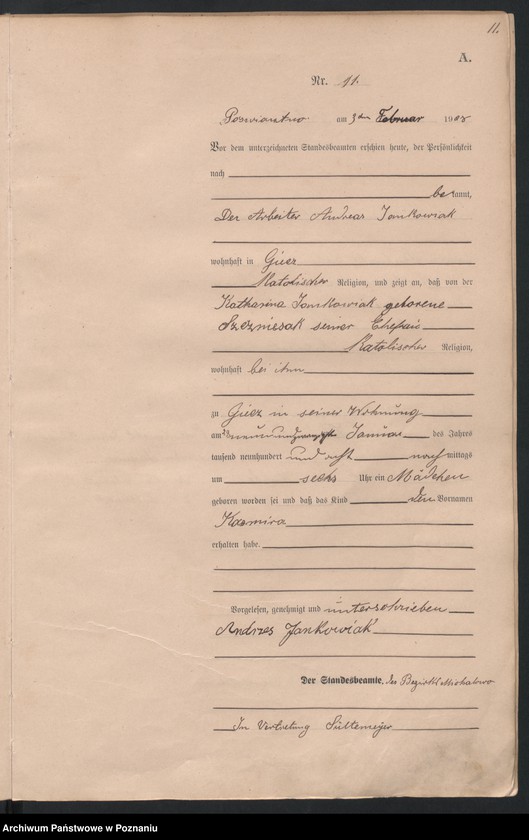 11.
A.
Nr. 11.
am 3ten Februar 1908
Vor dem unterzeichneten Standesbeamten erschien heute, der Persönlichkeit
nach
bekannt,
Der Arbeiter Andreas Jankowiak
wohnhaft in Giecz
Katolischer Religion, und zeigt an, daß von der
Katharina Jankowiak geborene
seiner Ehefrau
Katolischer Religion,
wohnhaft bei ihm
zu Giecz in seiner Wohnung
am neunundzwanzigsten Januar des Jahres
tausend neunhundert und acht nachmittags
um sechs Uhr ein Mädchen
geboren worden sei und daß das Kind den Vornamen
Kazmira
erhalten habe.
Vorgelesen, genehmigt und unterschrieben
Andrzej Jankowiak
Der Standesbeamte. des Bezirks
In Vertretung Sültemeyer
Archiwum Państwowe w Poznaniu